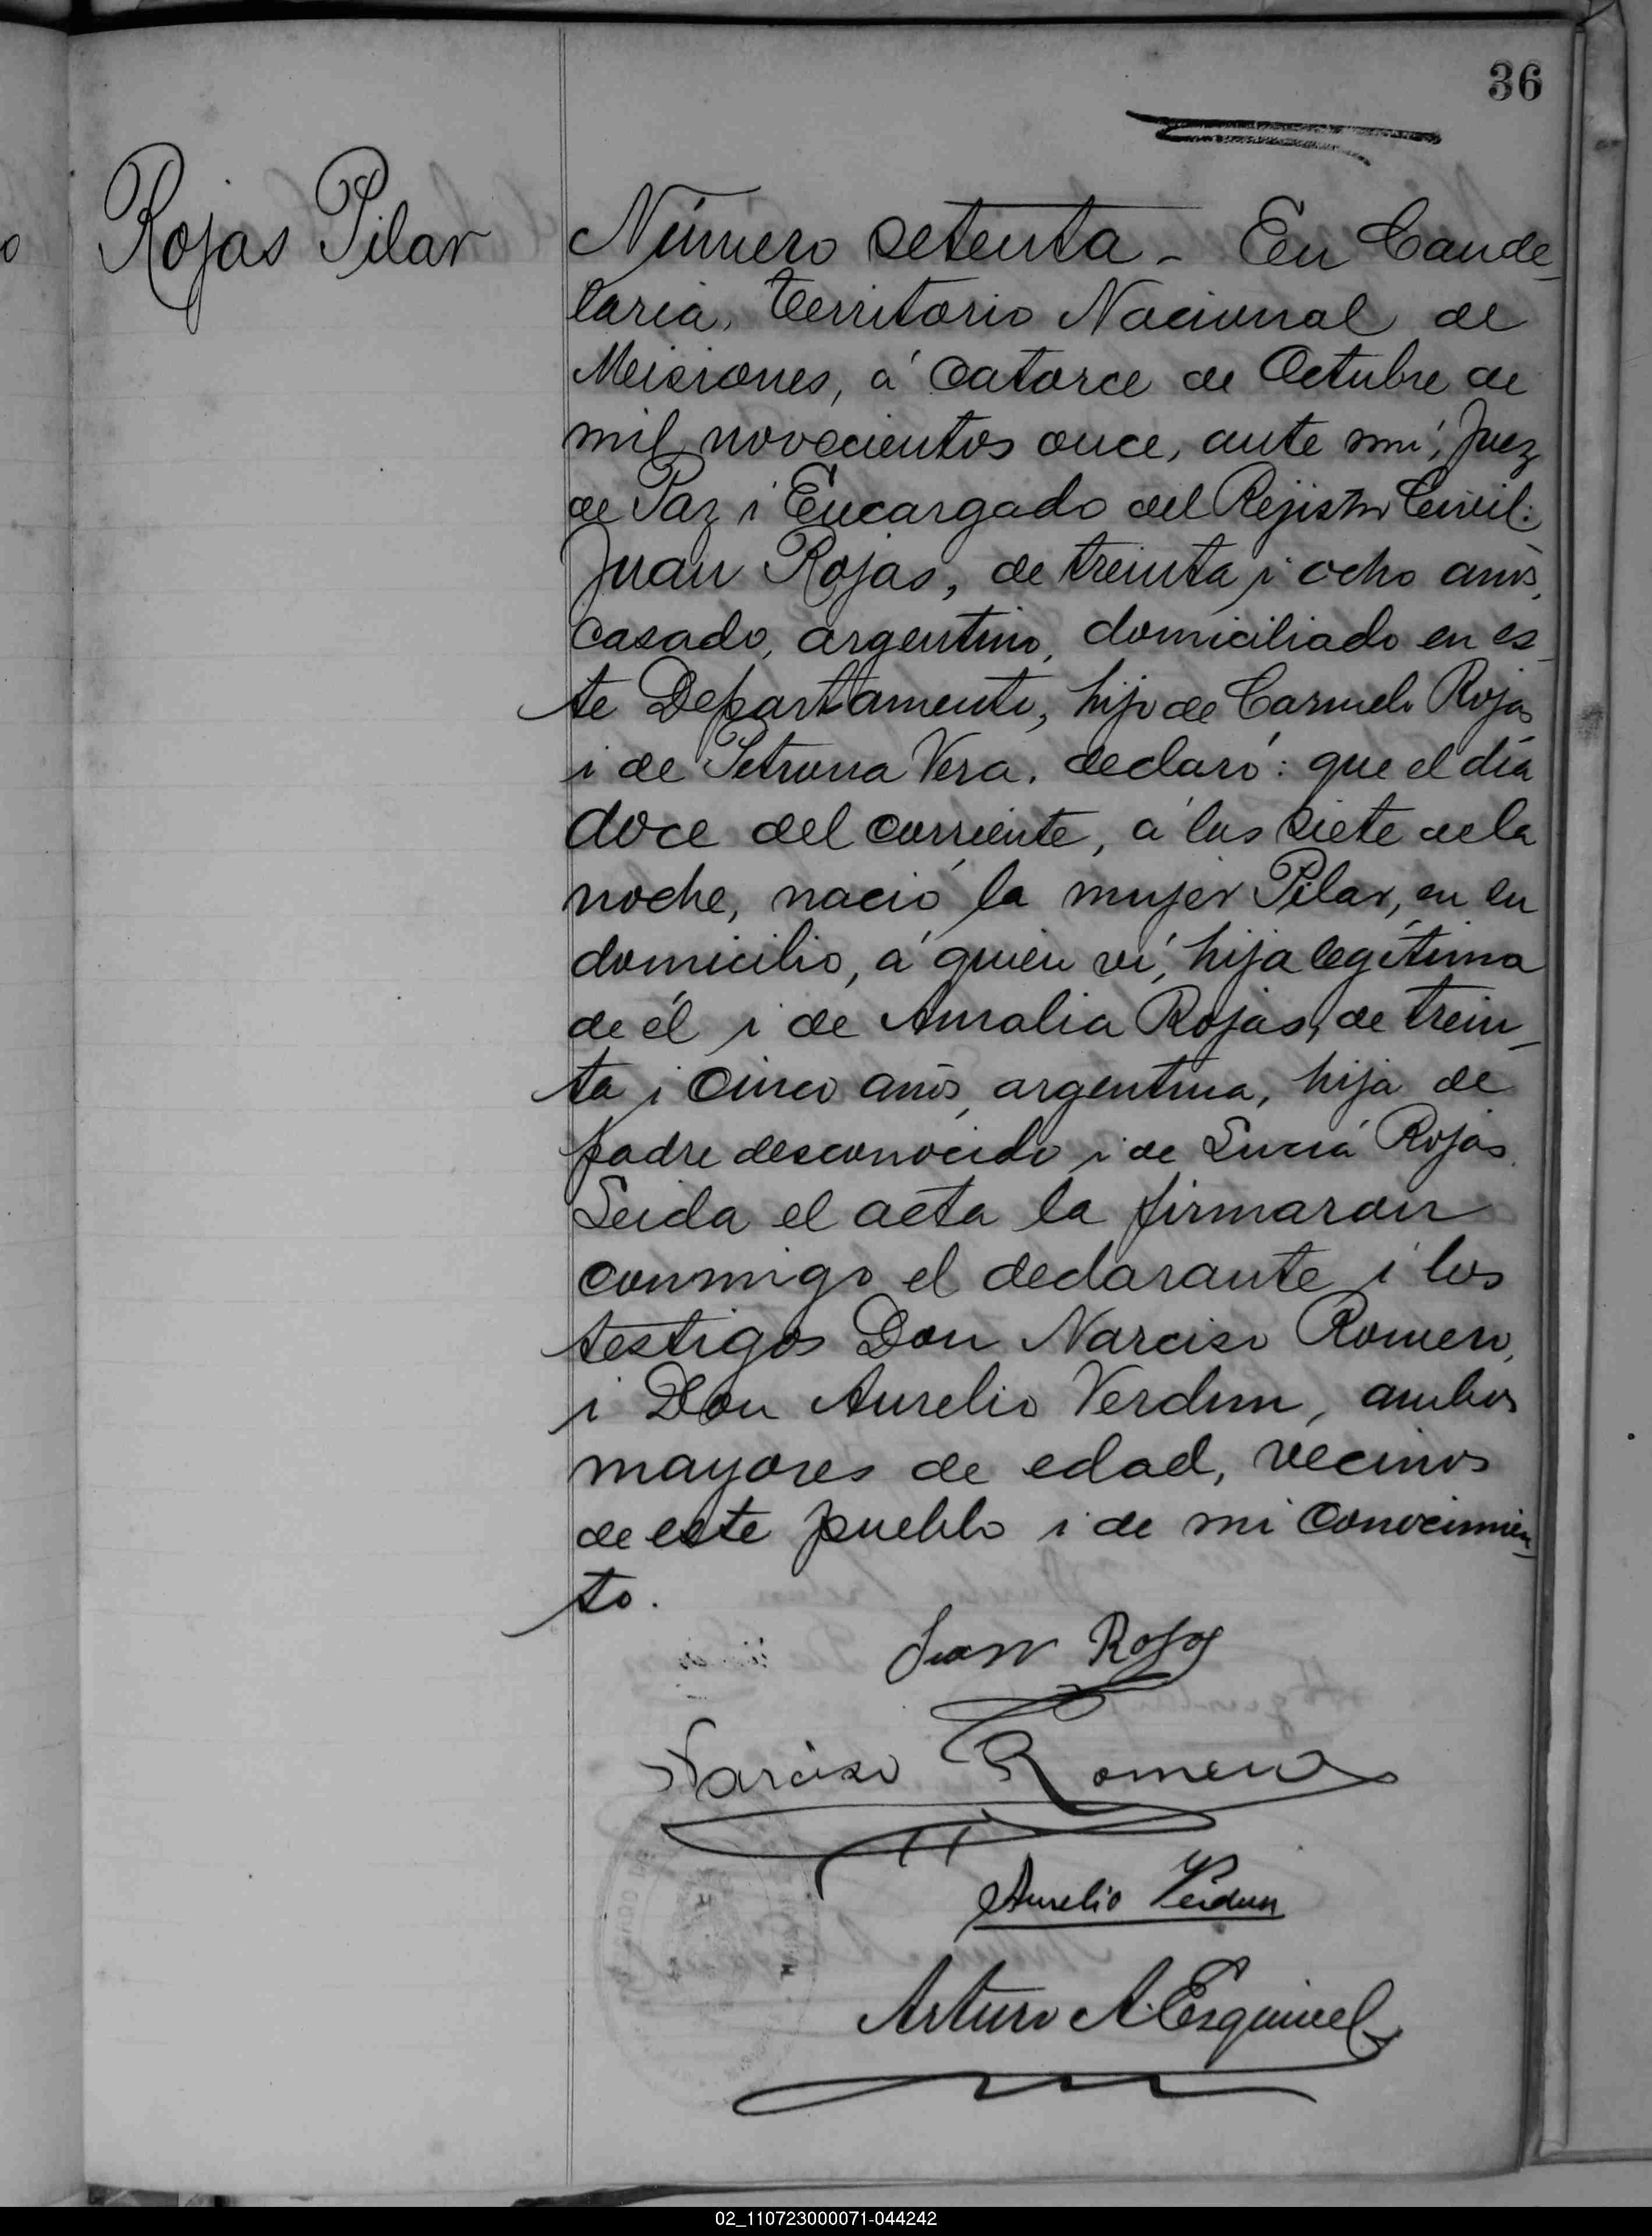 36
Rojas Pilar
Número setenta - En Cande-
laria, Territorio Nacional de
Misiones, á catorce de Octubre de
mil novecientos once, ante mí, Juez
de Paz i Encargado del Rejistro Civil:
Juan Rojas, de treinta i ocho años,
casado, argentino, domiciliado en es-
te Departamento, hijo de Carmelo Rojas
i de Petrona Vera, declaró: que el día
doce del corriente, á las siete de la
noche, nació la mujer Pilar, en su
domicilio, á quien ví, hija legítima
de él i de Amalia Rojas, de trein-
ta i cinco años, argentina, hija de
padre desconocido i de Lucía Rojas.
Leida el acta la firmaron
conmigo el declarante i los
testigos Don Narciso Romero,
i Don Aurelio Verdun, ambos
mayores de edad, vecinos
de este pueblo i de mi conocimien-
to.
Juan Rojas
Narciso Romero
Aurelio Verdun
Arturo A. Esquivel
02_110723000071-044242